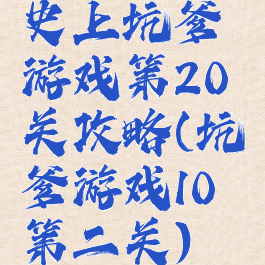 史上坑爹
游戏第20
关攻略(坑
爹游戏10
第二关)